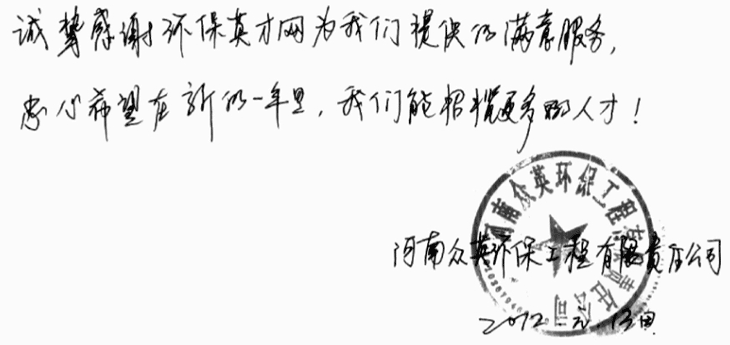 诚挚感谢环保英才网为我们提供的满意服务,
忠心希望在新的一年里,我们能招揽更多的人才!
河南众英环保工程有限责任公司
河南众英环保工程有限责任公司
2012.元.13日